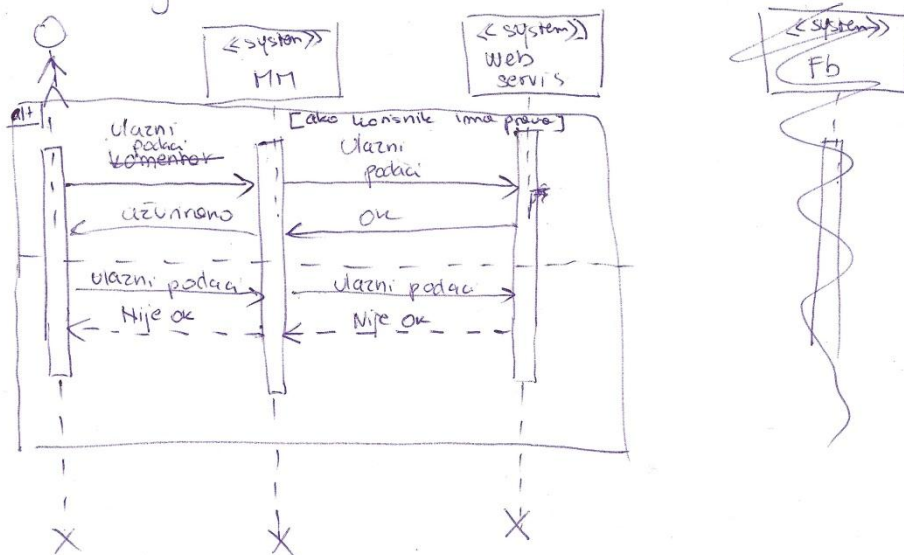 <<system>>
MM
<<system>>
Web
servis
<<system>>
Fb
alt
[ako korisnik ima pravo]
Ulazni
podaci
komentar
Ulazni
podaci
ažurirano
OK
Ulazni podaci
Ulazni podaci
Nije ok
Nije OK